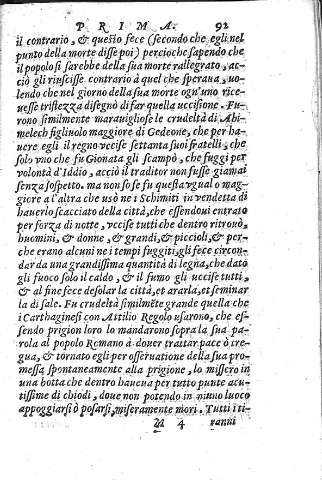 PRIMA. 92
il contrario, & questo fece (secondo che egli nel
punto della morte disse poi) percioche sapendo che
il popolo si sarebbe della sua morte rallegrato, ac-
ciò gli riuscisse contrario à quel che speraua, uo-
lendo che nel giorno della sua morte ogn'uno rice-
uesse tristezza disegnò di far quella uccisione. Fu-
rono similmente marauigliose le crudeltà di Abi-
melech figliuolo maggiore di Gedeone, che per ha-
uere egli il regno uccise settanta suoi fratelli, che
solo uno che fu Gionata gli scampò, che fuggì per
volontà d'Iddio, acciò il traditor non fusse giamai
senza sospetto. ma non so se fu questa ugual o mag-
giore a l'altra che usò ne i Schimiti in vendetta di
hauerlo scacciato della città, che essendoui entrato
per forza di notte, uccise tutti che dentro ritrouò,
huomini, & donne, & grandi, & piccioli, & per-
che erano alcuni ne i tempi fuggiti, gli fece circon-
dar da una grandissima quantità di legna, che dato
gli fuoco solo il caldo, & il fumo gli uccise tutti,
& al fine fece desolar la città, et ararla, et seminar
la di sale. Fu crudeltà similmẽte grande quella che
i Carthaginesi con Attilio Regolo usarono, che es-
sendo prigion loro lo mandarono sopra la sua pa-
rola al popolo Romano à douer trattar pace ò tre-
gua, & tornato egli per osseruatione della sua pro-
messa spontaneamente alla prigione, lo missero in
una botta che dentro haueua per tutto punte acu-
tissime di chiodi, doue non potendo in niuno luoco
appoggiarsi ò posarsi, miseramente morì. Tutti i ti-
M 4 ranni